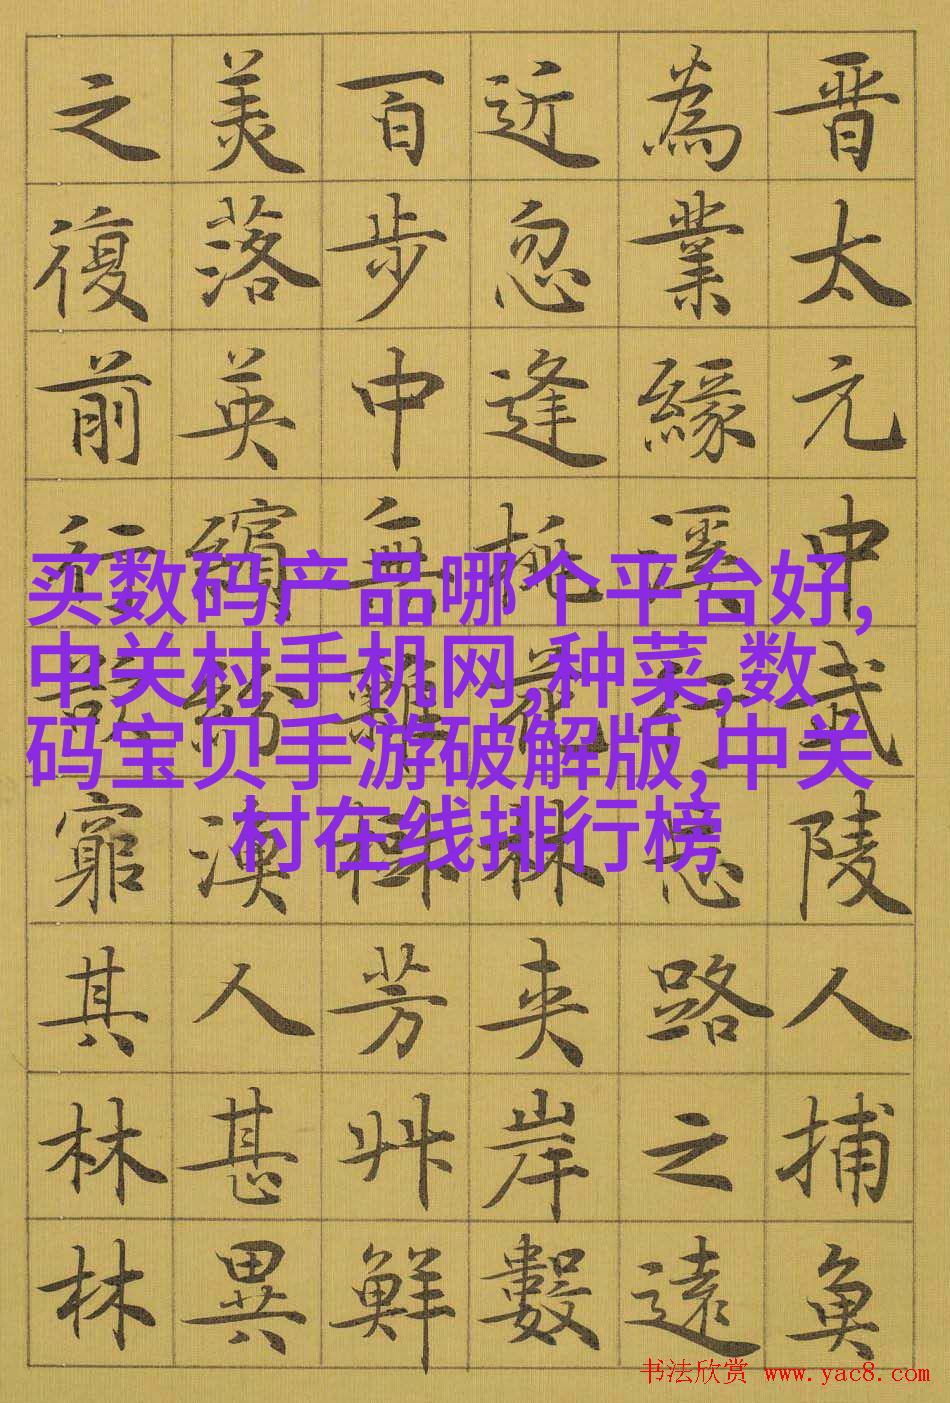 晋太元中武陵人捕魚
為業緣溪行忘路之遠
近忽逢桃花林夾岸數
百步中無雜樹芳艸鮮
美落英繽紛漁人甚異
之復前行欲窮其林林
买数码产品哪个平台好,
中关村手机网,种菜,数
码宝贝手游破解版,中关
村在线排行榜
书法欣赏 www.yac8.com